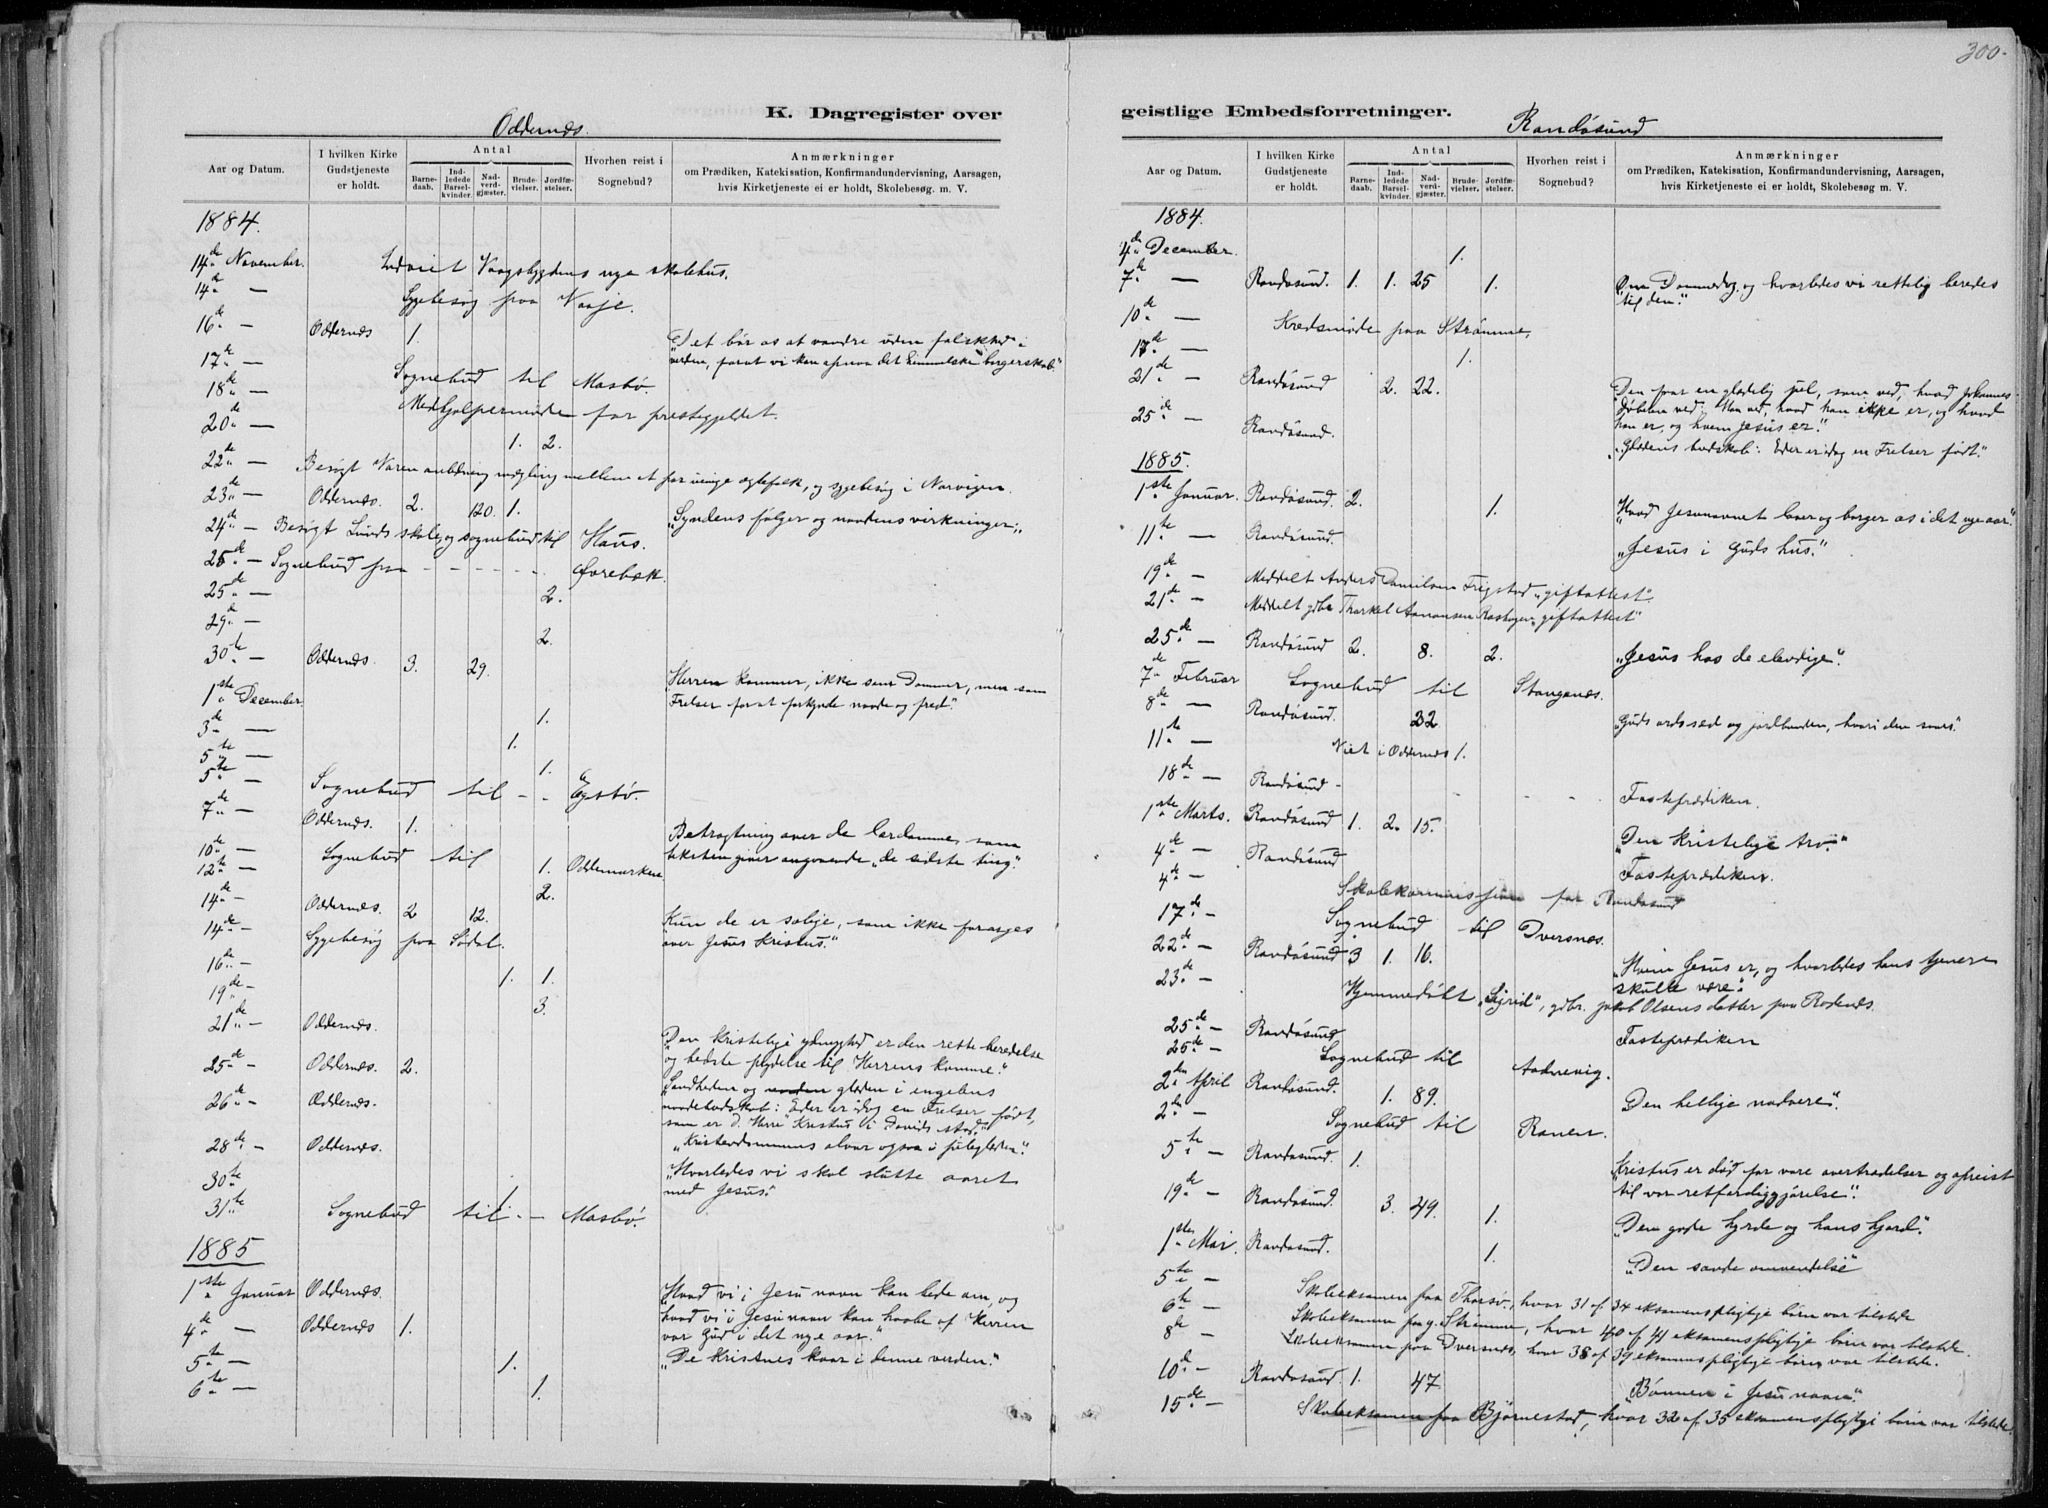 300.
K. Dagregister over
Oddernæs.
Aar og Datum.
I hvilken Kirke Gudstjeneste er holdt.
Antal
Barnedaab.
Indledede Barselkvinder.
Nadverdgjæster.
Brudevielser.
Jordfæstelser.
Hvorhen reist i Sognebud?
Anmærkninger
om Prædiken, Katekisation, Konfirmandundervisning, Aarsagen,
hvis Kirketjeneste ei er holdt, Skolebesøg m. V.
1884.
14de November. Indviet Vaagsbygdens nye skolehus.
14de — Sygebesøg paa Vaaje.
16de — Oddernæs 1. "Det bør os at vandre uden falskhed i
verden, forat vi kan opnaa det himmelske borgerskab."
17de — Sognebud til Mosbø.
18de — Medhjælpermøde for prestegjeldet.
20de — 1. 2.
22de — Besøgt mægling mellem et par unge ægtefolk, og sygebesøg i Narvigen.
23de — Oddernæs. 2. 120. 1. "Syndens følger og naadens virkninger."
24de — Besøgt Lunds skole, og sognebud til Haus.
25de — Sognebud paa - - - - - -Ørebæk.
25de — 2.
29de — 2.
30te — Oddernæs. 3. 29. "Herren kommer, ikke som Dommer, men som
Frelser for at forkynde naade og fred."
1ste December. 1.
3de — 1.
5te — 1.
5te — Sognebud til - - Egstø.
7de — Oddernæs. 1. Betragtning over de lærdomme, som
teksten giver angaaende "de sidste ting."
10de — Sognebud til 1. Oddemarken
12te — 2.
14de — Oddernæs. 2 12. "Kun de er salige, som ikke forarges
over Jesus Kristus."
14de — Sygebesøg paa Sødal.
16de — 1. 1.
19de — 3.
21de — Oddernæs. "Den kristelige ydmyghed er den rette beredelse
og bedste prydelse til Herrens komme."
25de — Oddernæs. 2. "Sandheden og glæden i engelens
naadebudskab: Eder er idag en Frelser født,
som er d. Herre Kristus i Davids stad."
26de — Oddernæs.
"Kristendommens alvor ogsaa i juleglæden."
28de — Oddernæs. "Hvorledes vi skal slutte aaret
med Jesus."
30te — 1.
31te — Sognebud til - - Mosbø.
1885
1ste Januar Oddernæs. "Hvad vi i Jesu navn kan bede om, og
hvad vi i Jesu navn kan haabe af Herren
vor Gud i det nye aar."
4de — Oddernæs 1. "De Kristnes kaar i denne verden."
5te — 1.
6te — 1.
geistlige Embedsforretninger.
Randøsund
Aar og Datum.
I hvilken Kirke Gudstjeneste er holdt.
Antal
Barnedaab.
Indledede Barselkvinder.
Nadverdgjæster.
Brudevielser.
Jordfæstelser.
Hvorhen reist i Sognebud?
Anmærkninger
om Prædiken, Katekisation, Konfirmandundervisning, Aarsagen,
hvis Kirketjeneste ei er holdt, Skolebesøg m. V.
1884.
4de December. 1.
7de — Randøsund. 1. 1. 25 1. "Om Dommedag, og hvorledes vi rettelig beredes
til den."
10de — Kredsmøde paa Strømme.
17de — 1.
21de — Randøsund 2. 22. "Den faar en glædelig jul, som ved, hvad Johannes
Døberen ved: Han ved, hvad han ikke er, og hvad
han er, og hvem Jesus er."
25de — Randøsund. "Glædens budskab: Eder er idag en Frelser født."
1885.
1ste Januar. Randøsund. 2. 1. "Hvad Jesunavnet lover og borger os i det nye aar."
11te — Randøsund. "Jesus i Guds hus."
19de — Meddelt Anders Danielsen Frigstad "giftattest".
21de — Meddelt gdbr. Thorkel Aanonsen "giftattest"
25de — Randøsund 2. 8. 2. "Jesus hos de elendige."
7de Februar Sognebud til Stangenæs.
8de — Randøsund. 22 "Guds ords sæd og jordbunden, hvori den saaes."
11te — Viet i Oddernæs 1.
18de — Randøsund - - - - Fasteprædiken.
1ste Marts. Randøsund 1. 2. 15. "Den kristelige tro."
4de — Randøsund Fasteprædiken.
4de — Skolekommission for Randøsund
17de — Sognebud til Dversnæs.
22de — Randøsund 3 1. 16. "Hvem Jesus er, og hvorledes hans tjenere
skulle være."
23de — Hjemmedøbt "Sigrid", gdbr. Jakob Olsens datter paa Rodenæs.
25de — Randøsund Fasteprædiken
25de — Sognebud til
2den April Randøsund. 1. 89. "Den hellige nadvere".
2den — Sognebud til Ronen.
5te — Randøsund. 1. "Kristus er død for vore overtrædelser og opreist
til vor retfærdiggjørelse".
19de — Randøsund. 3. 49. 1. "Den gode hyrde og hans hjord."
1ste Mai. Randøsund. 1. "Den sande omvendelse"
5te — Skoleeksamen paa Thorsø, hvor 31 af 34 eksamenspligtige børn var tilstede
6te — Skoleeksamen paa Strømme, hvor 40 af 41 eksamenspligtige børn var tilstede.
8de — Skoleeksamen paa Dversnæs, hvor 38 af 39 eksamenspligtige børn var tilstede.
10de — Randøsund. 1. 47 "Bønnen i Jesu navn".
15de — Skoleeksamen paa Bjørnestad, hvor 32 af 35 eksamenspligtige børn var tilstede.